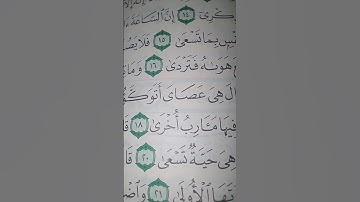 ـكْرِىٓ ١٤ إِنَّ ٱلسَّاعَةَ ءَا
ـسٍۭ بِمَا تَسْعَىٰ ١٥ فَلَا يَصُـ
هَوَىٰهُ فَتَرْدَىٰ ١٦ وَمَا
ـالَ هِىَ عَصَاىَ أَتَوَكَّؤُ
فِيهَا مَـَٔارِبُ أُخْرَىٰ ١٨ قَا
هِىَ حَيَّةٌ تَسْعَىٰ ٢٠ قَا
ـتَهَا ٱلْأُولَىٰ ٢١ وَٱضْـ